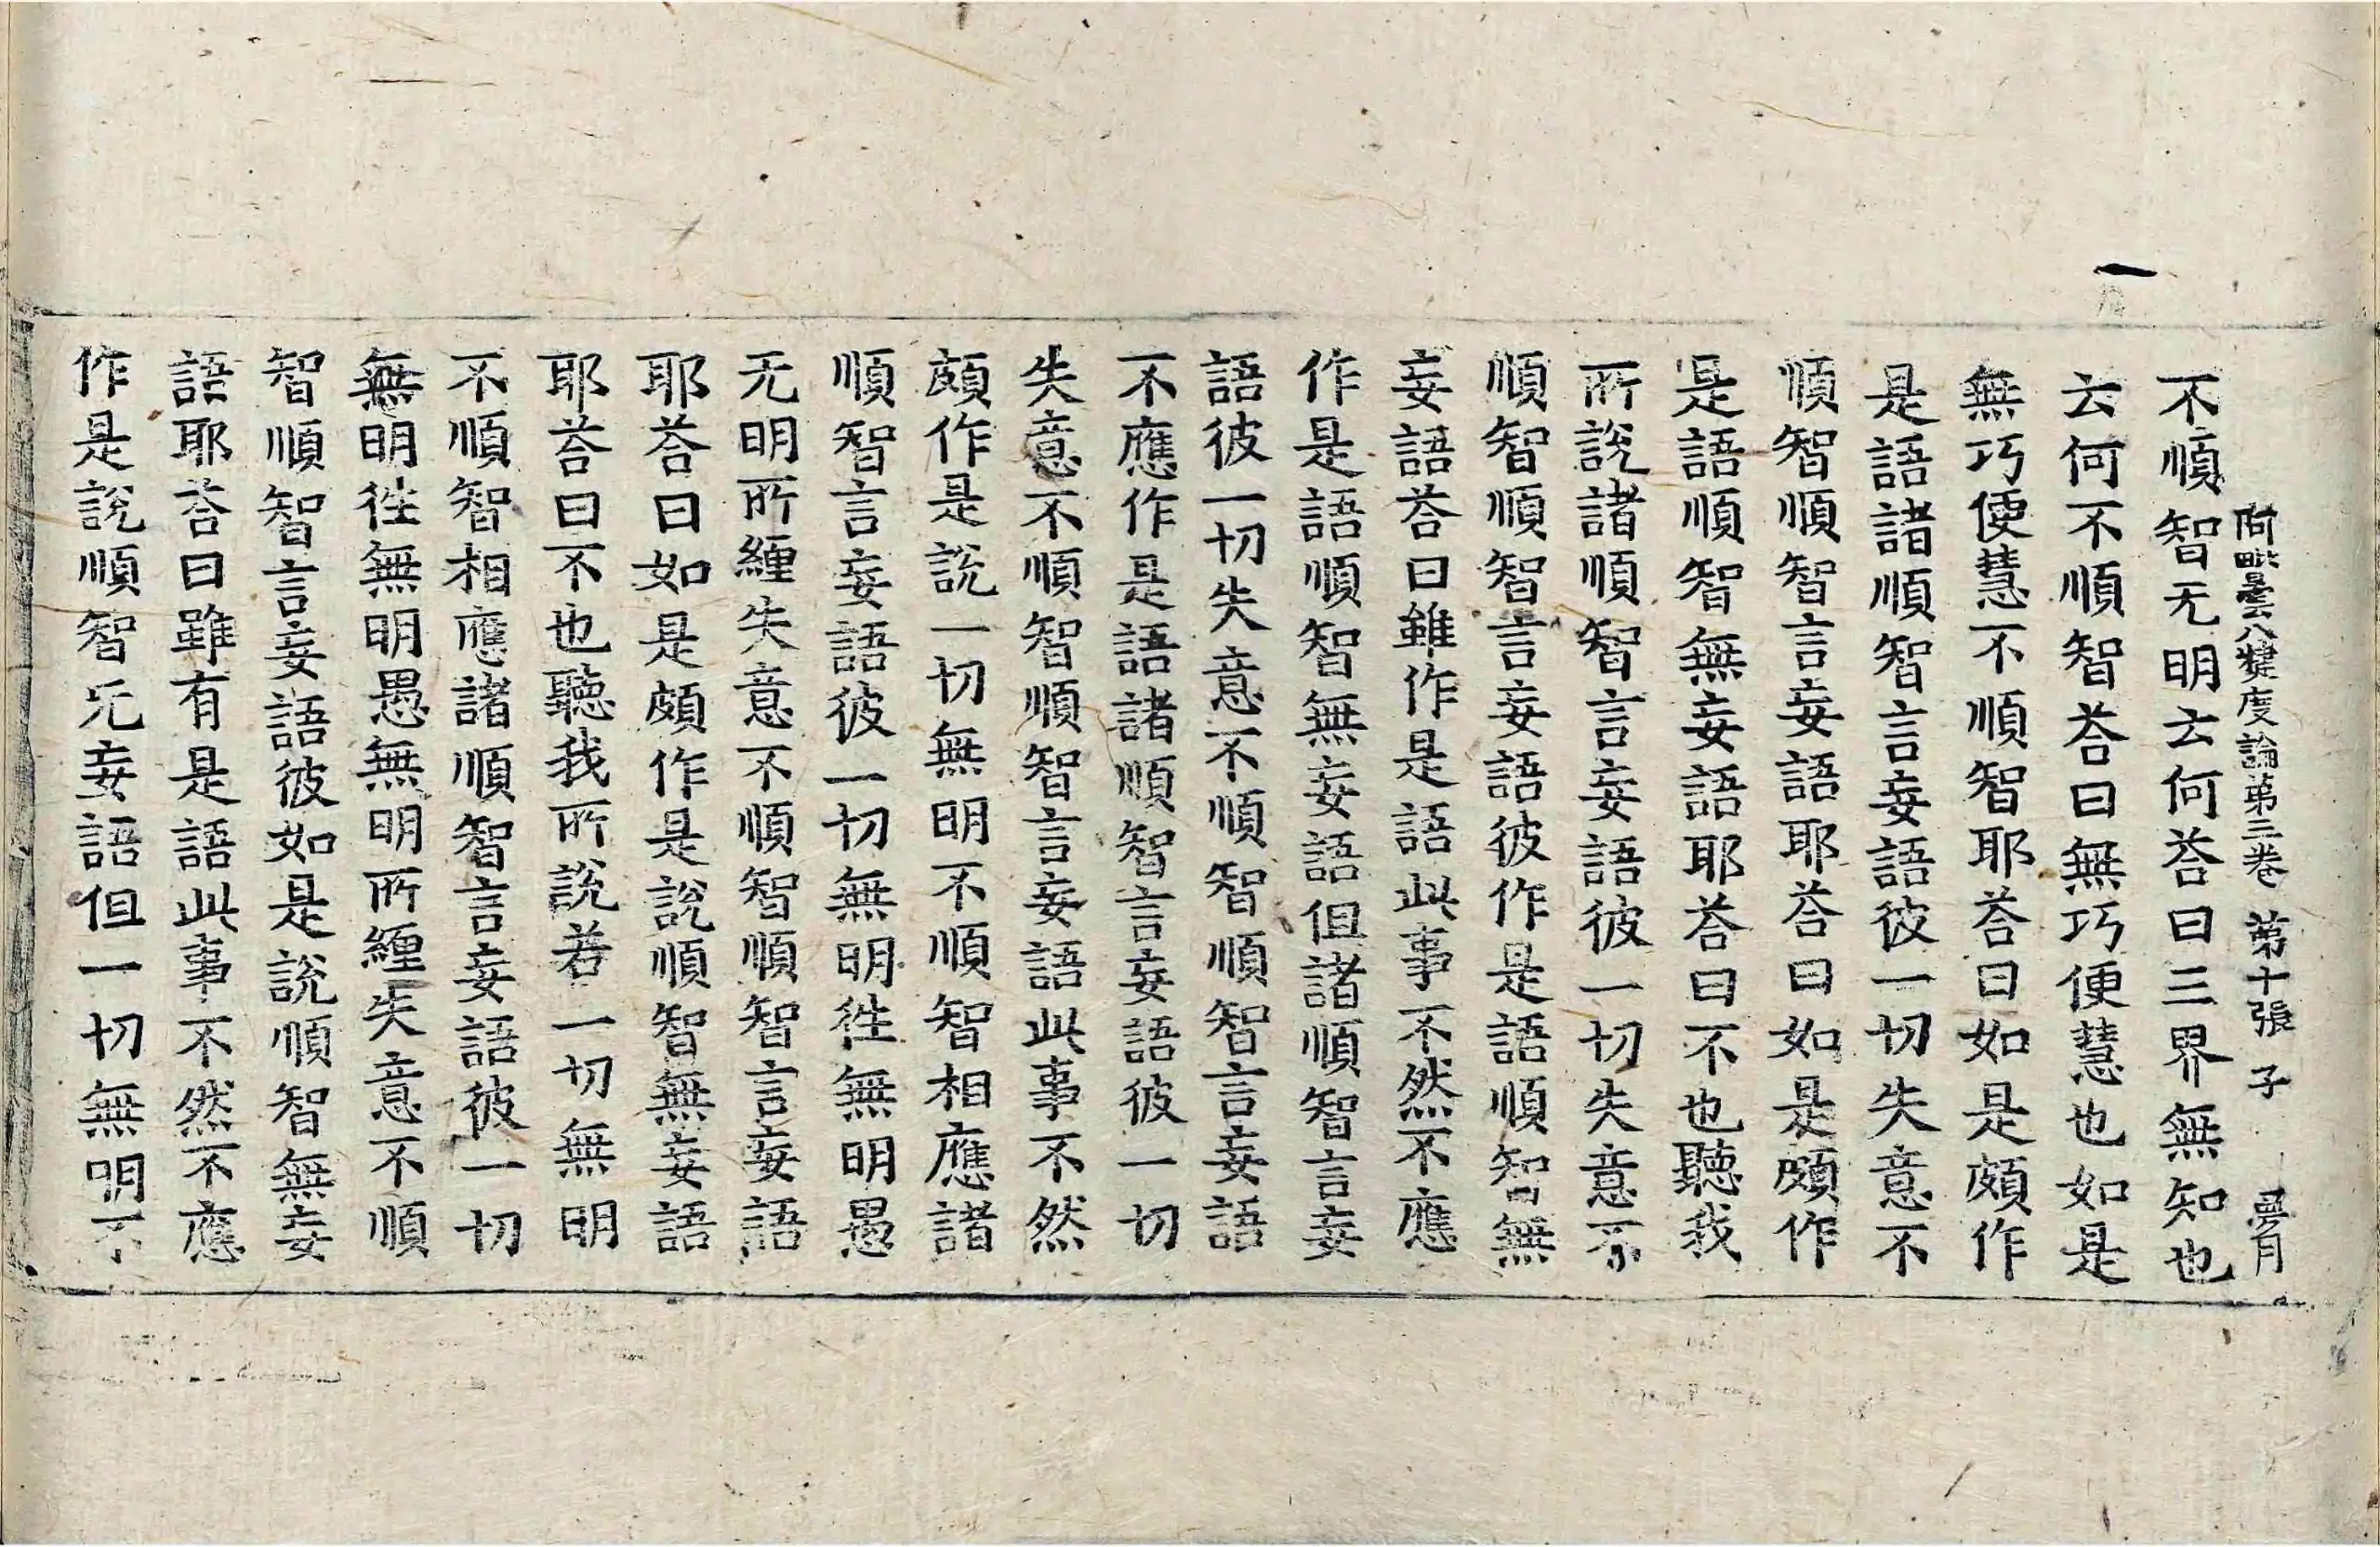 阿毗曇八犍度論第三卷 第十張 子
不順智无明云何荅曰三界無知也
云何不順智荅曰無巧便慧也如是
無巧便慧不順智耶荅曰如是頗作
是語諸順智言妄語彼一切失意不
順智順智言妄語耶荅曰如是頗作
是語順智無妄語耶荅曰不也聽我
所說諸順智言妄語彼一切失意不
順智順智言妄語彼作是語順智無
妄語荅曰雖作是語此事不然不應
作是語順智無妄語但諸順智言妄
語彼一切失意不順智順智言妄語
不應作是語諸順智言妄語彼一切
失意不順智順智言妄語此事不然
頗作是說一切無明不順智相應諸
順智言妄語彼一切無明徃無明愚
无明所纏失意不順智順智言妄語
耶荅曰如是頗作是說順智無妄語
耶荅曰不也聽我所說若一切無明
不順智相應諸順智言妄語彼一切
無明徃無明愚無明所纏失意不順
智順智言妄語彼如是說順智無妄
語耶荅曰雖有是語此事不然不應
作是說順智无妄語但一切無明不